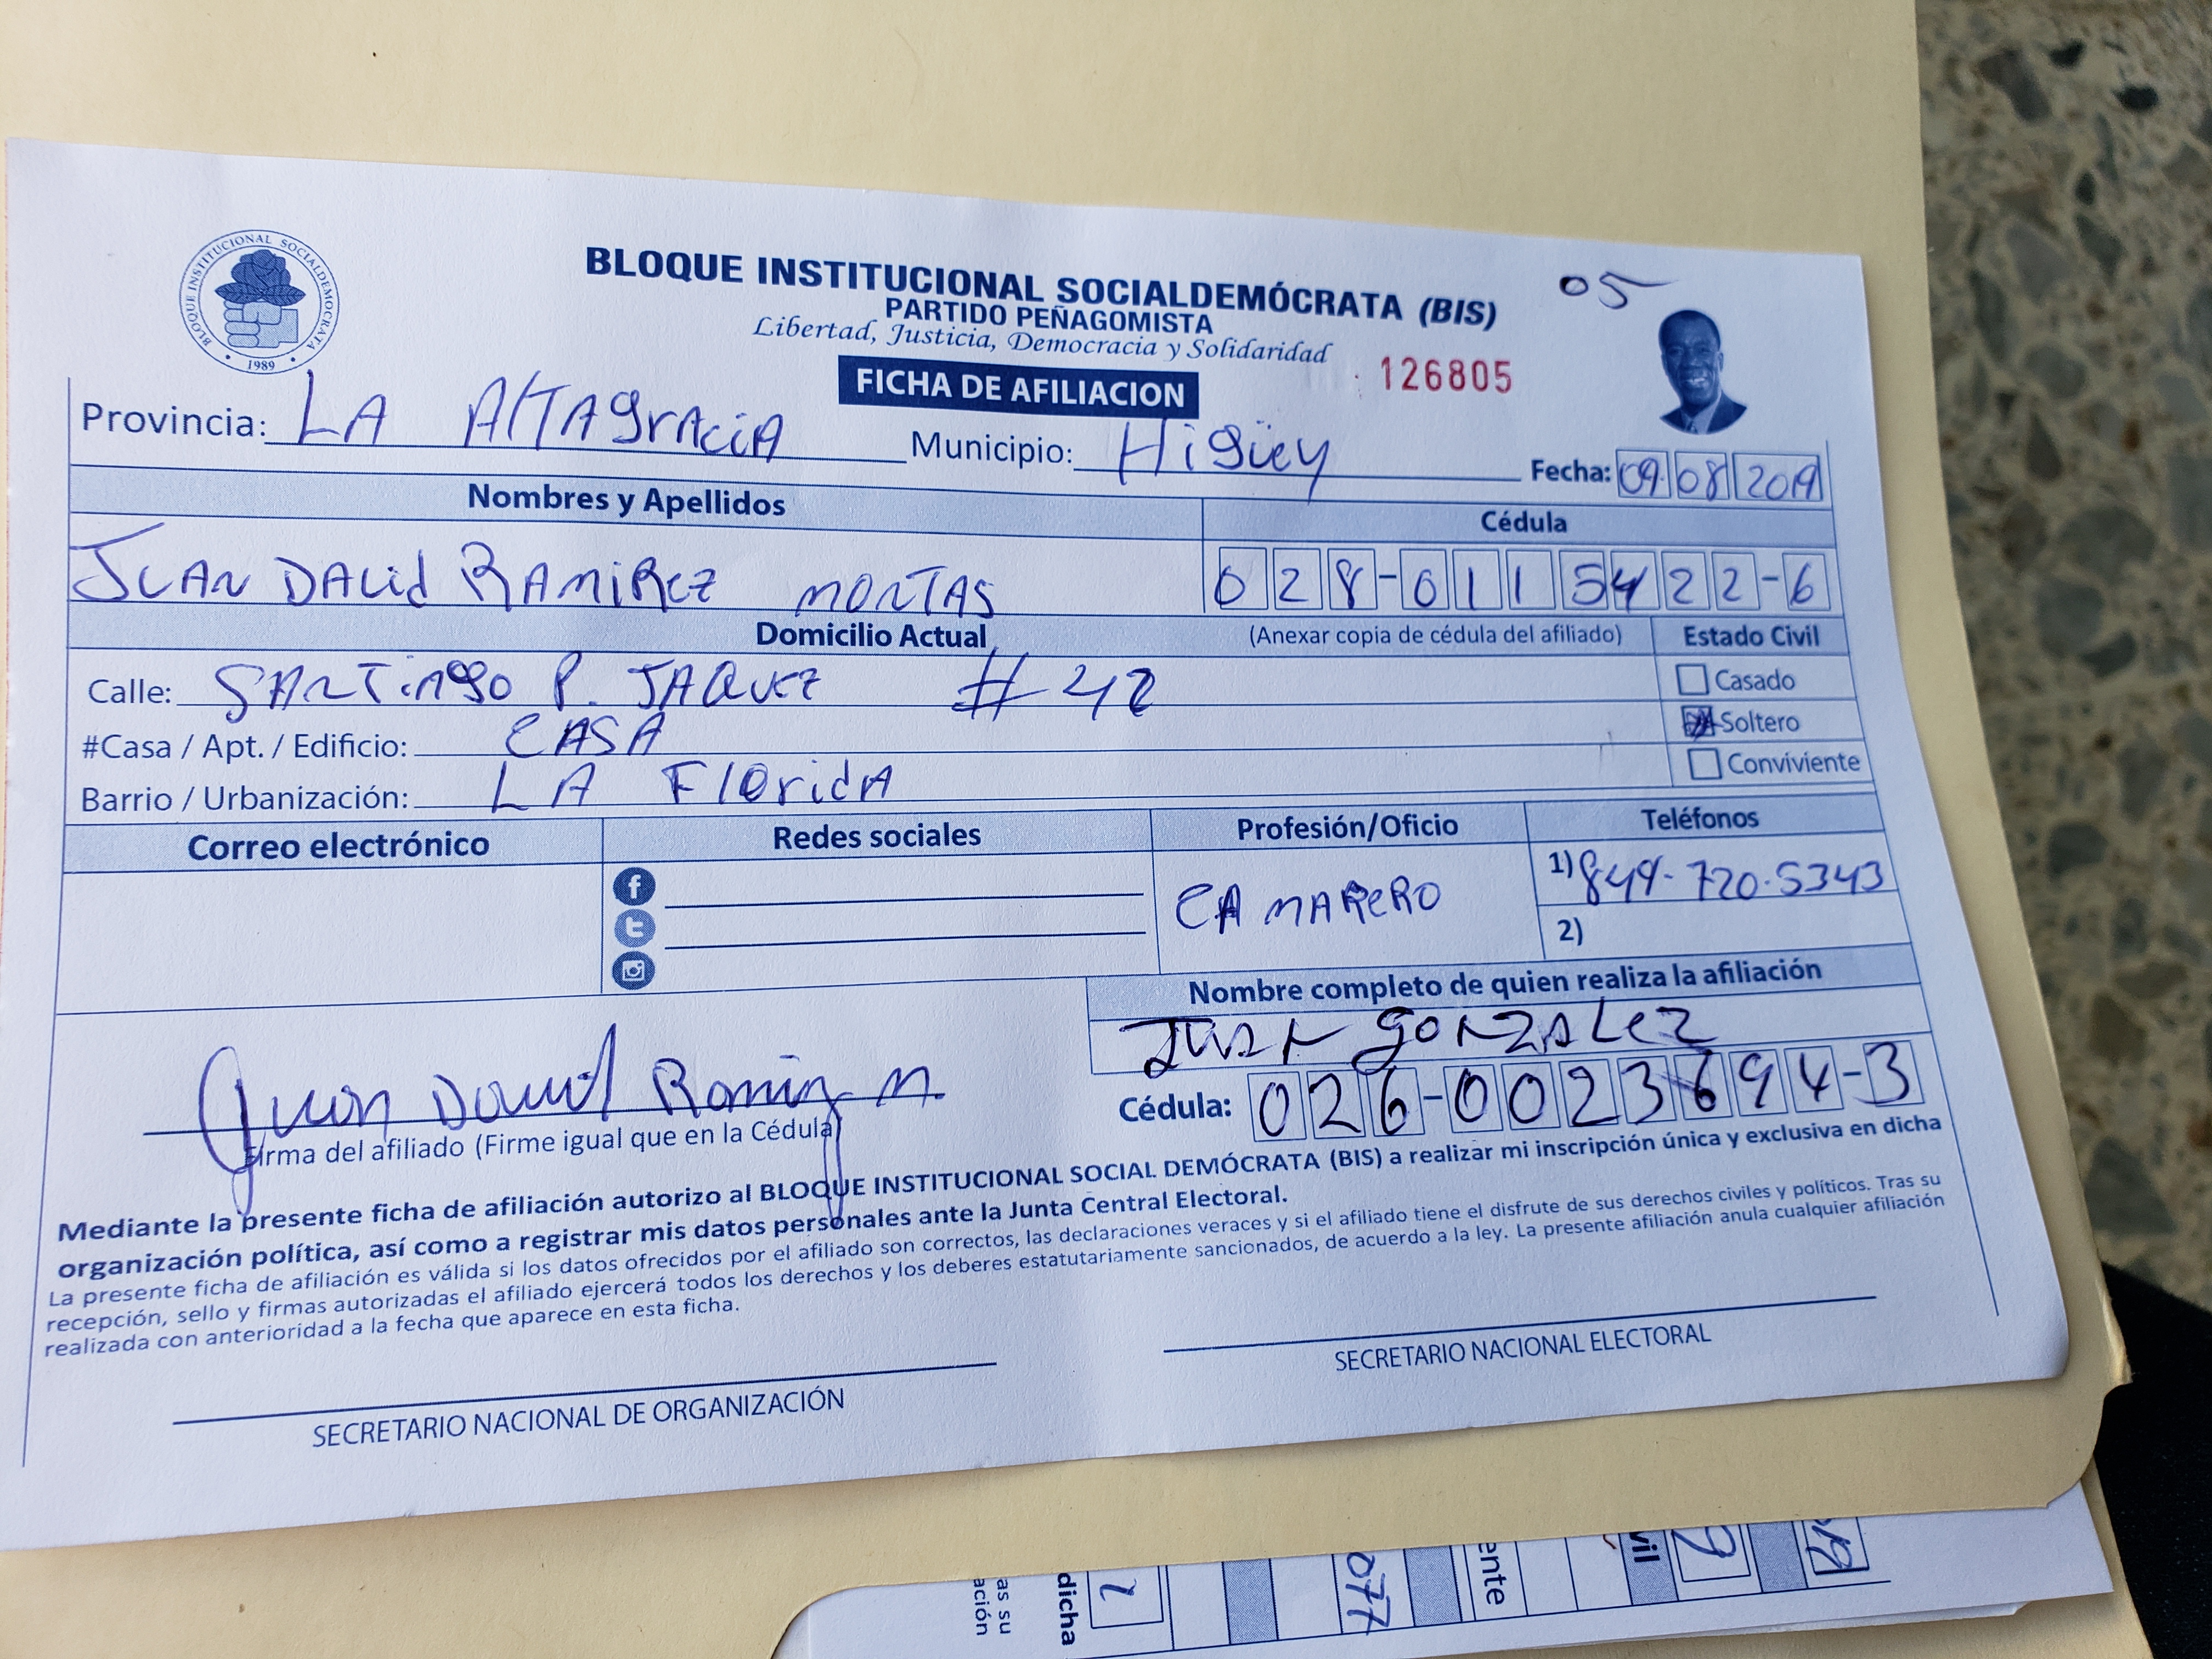 BLOQUE INSTITUCIONAL SOCIALDEMOCRATA
1989
BLOQUE INSTITUCIONAL SOCIALDEMÓCRATA (BIS)
05
PARTIDO PEÑAGOMISTA
Libertad, Justicia, Democracia y Solidaridad
FICHA DE AFILIACION
126805
Provincia: LA AltAgrAciA Municipio: Higüey Fecha: 09 08 2019
Nombres y Apellidos Cédula
JUAN DAvid RAMiREZ MONTAS 028-0115422-6
Domicilio Actual (Anexar copia de cédula del afiliado) Estado Civil
Calle: SANTiAgo P. JAQUEZ # 42 Casado
#Casa / Apt. / Edificio: CASA Soltero
Barrio / Urbanización: LA FloridA Conviviente
Correo electrónico Redes sociales Profesión/Oficio Teléfonos
CAMARERO 1) 849-720-5343
2)
Nombre completo de quien realiza la afiliación
JUAN gONZALEZ
Juan David Ramirez M.
Cédula: 026-0023694-3
Firma del afiliado (Firme igual que en la Cédula)
Mediante la presente ficha de afiliación autorizo al BLOQUE INSTITUCIONAL SOCIAL DEMÓCRATA (BIS) a realizar mi inscripción única y exclusiva en dicha
organización política, así como a registrar mis datos personales ante la Junta Central Electoral.
La presente ficha de afiliación es válida si los datos ofrecidos por el afiliado son correctos, las declaraciones veraces y si el afiliado tiene el disfrute de sus derechos civiles y políticos. Tras su
recepción, sello y firmas autorizadas el afiliado ejercerá todos los derechos y los deberes estatutariamente sancionados, de acuerdo a la ley. La presente afiliación anula cualquier afiliación
realizada con anterioridad a la fecha que aparece en esta ficha.
SECRETARIO NACIONAL DE ORGANIZACIÓN SECRETARIO NACIONAL ELECTORAL
as su
ación
dicha
077
ente
vil